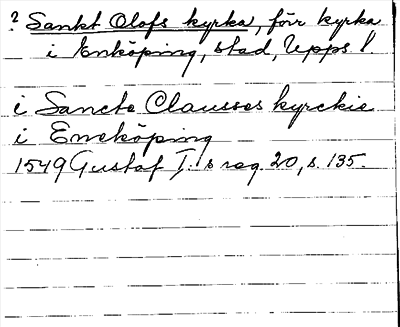 ? Sankt Olofs kyrka, förr kyrka
i Enköping, stad, Upps. l
i Sancte Clausses kyrckie
i Eneköping
1549 Gustaf I:s reg. 20, s. 135.